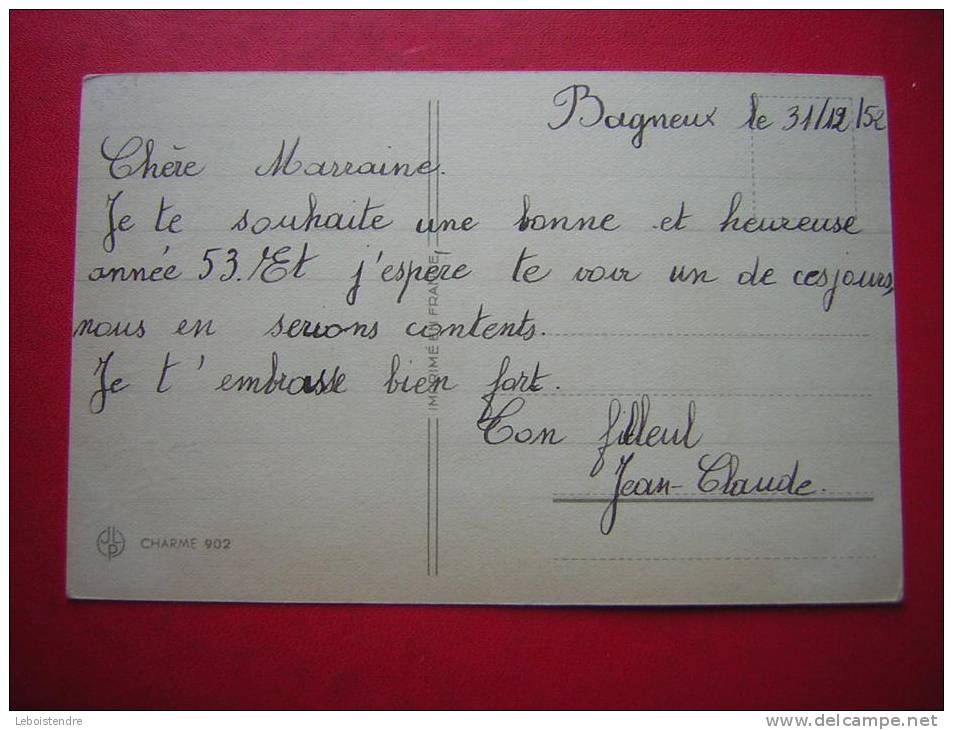 Bagneux le 31/12/52
Chère Marraine.
Je te souhaite une bonne et heureuse
année 53. Et j'espère te voir un de ces jours,
nous en serions contents.
Je t'embrasse bien fort.
Ton filleul
Jean-Claude.
IMPRIMÉ EN FRANCE
JLP CHARME 902
Leboistendre
www.delcampe.net